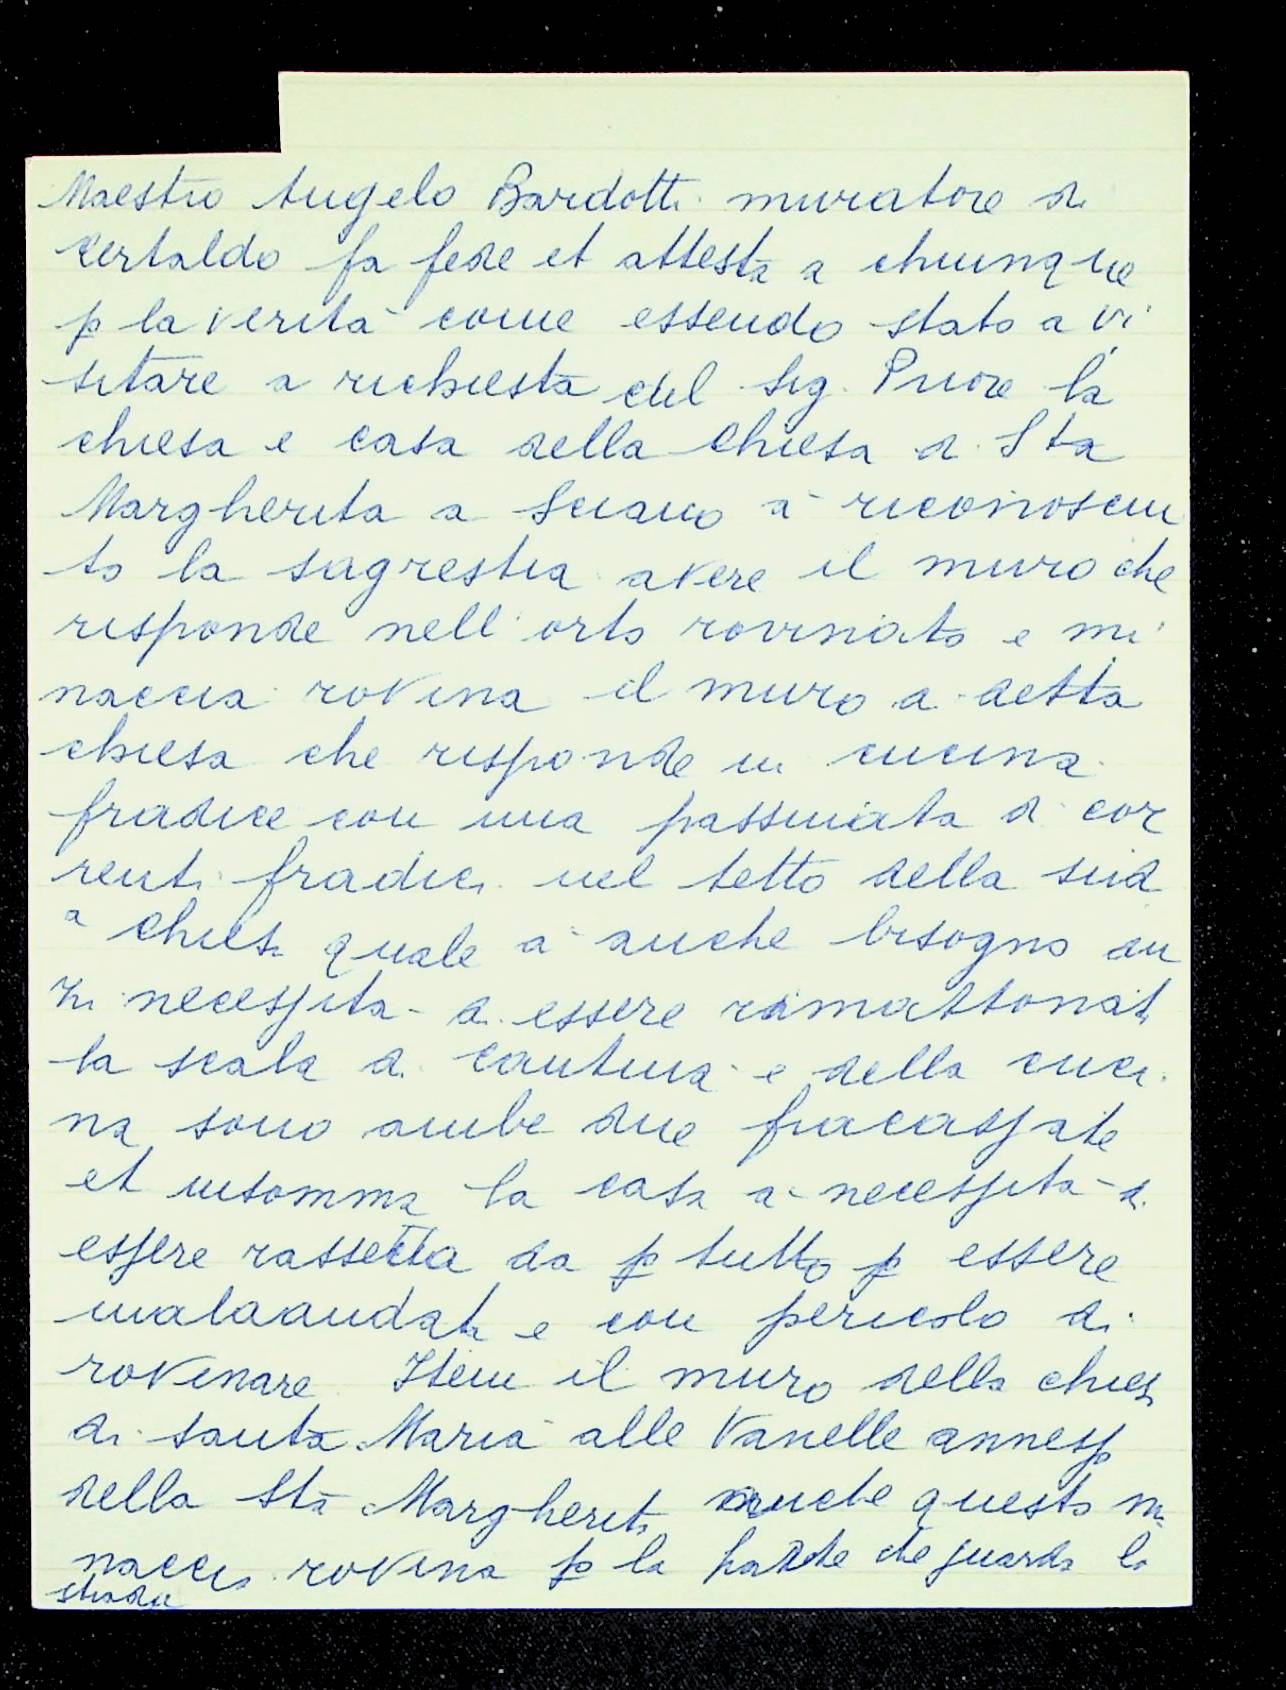 Maestro Angelo Bardotti muratore di
Certaldo fa fede et attesta a chiunque
p la verità come essendo stato a vi
sitare a richiesta del Sig. Priore la
chiesa e casa della Chiesa di Sta
Margherita a Sciano à riconosciu
to la sagrestia avere il muro che
risponde nell'orto rovinato e mi
naccia rovina il muro di detta
chiesa che risponde in cucina
fradice con una passinata di cor
renti fradici nel tetto della sud
a Chiesa quale à anche bisogno an
zi necessita di essere rimattonata
la scala di Cantina e della cuci
na sono ambe due fracassate
et insomma la casa à necessita di
essere rassetta da p tutto p essere
malaandata e con pericolo di
rovinare Item il muro della chiesa
di santa Maria alle Vanelle annessa
della Sta Margherita anche questo mi
naccia rovina p la parte che guarda la
strada